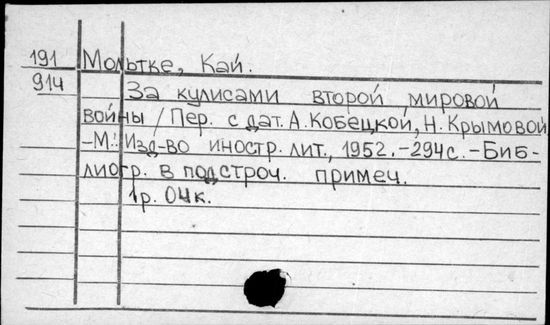 191 Мольтке, Кай.
914
За кулисами второй мировой
войны / Пер. с дат. А. Кобецкой, Н. Крымовой
-М.: Изд-во иностр. лит., 1952.-294с.-Биб-
лиогр. в подстроч. примеч.
1р. 04к.